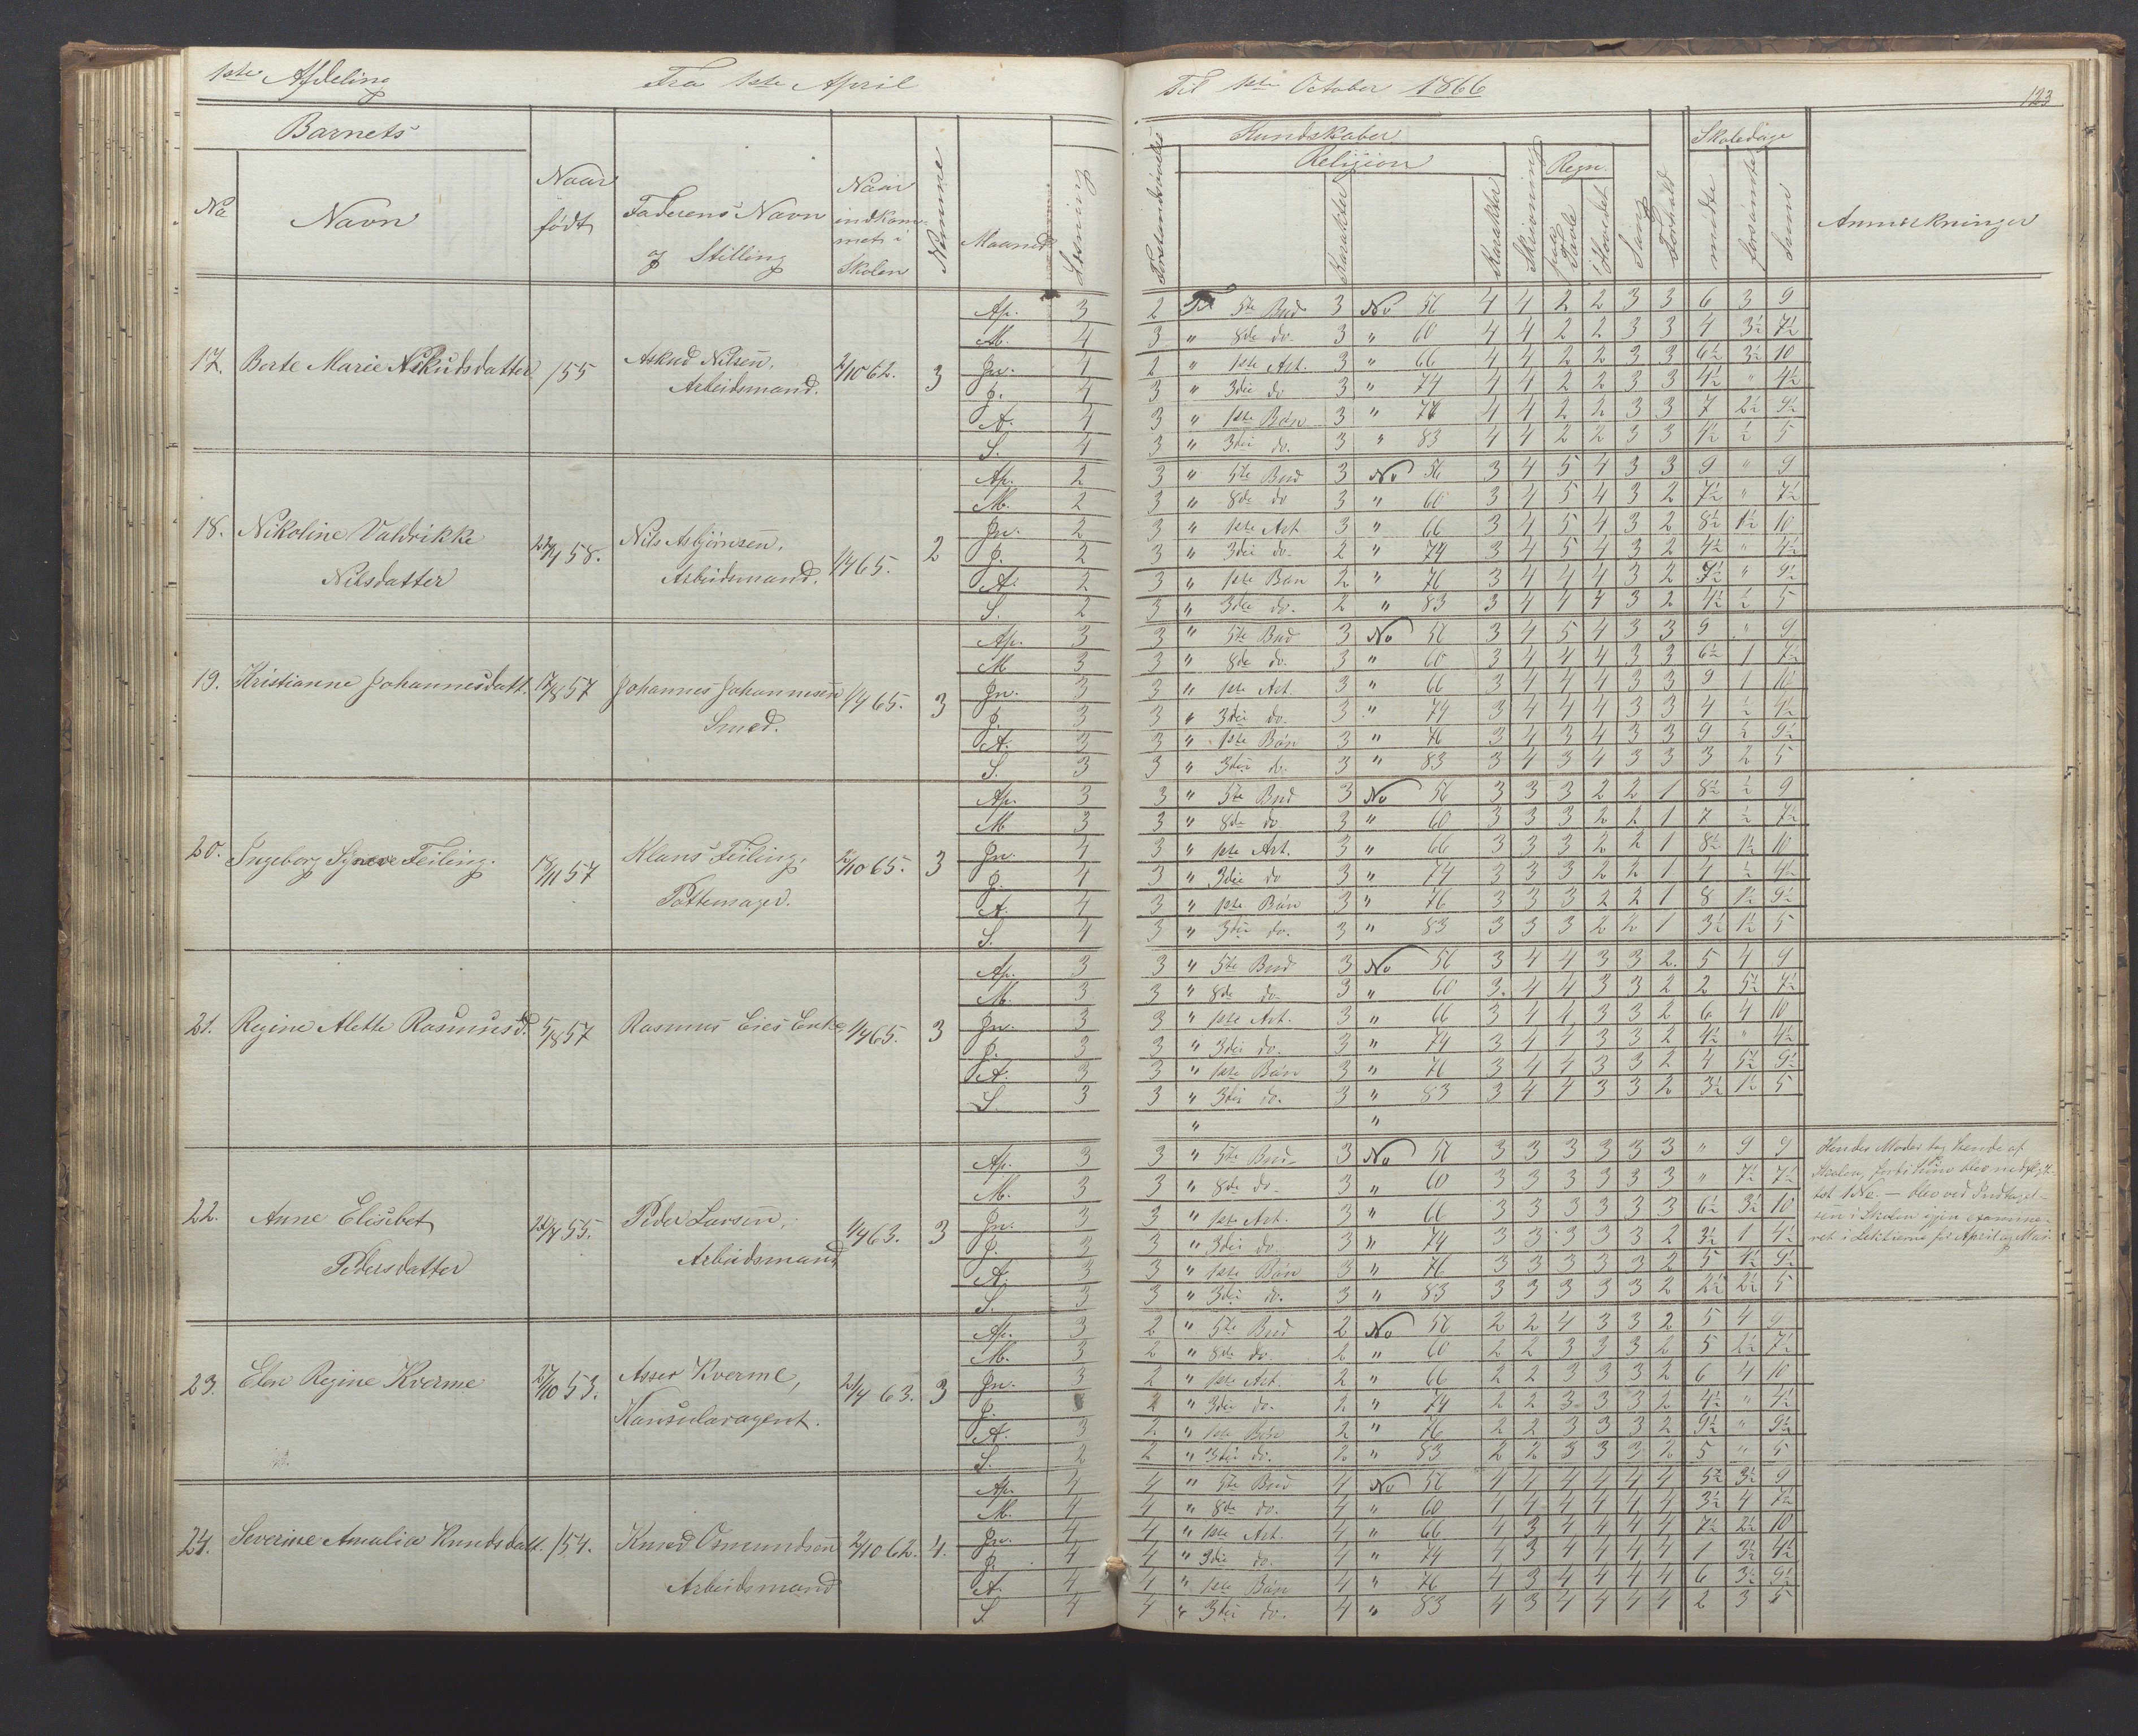 1ste Afdeling Fra 1ste April Til 1ste October 1866 123
Barnets Kundskaber Skoledage
Religion Regn.
No Navn Naar født Faderens Navn og Stilling Naar indkommet i Skolen Nemme Maaned Læsning Forstandsøvelse Karakter Karakter Skrivning paa Tavle i Hovedet Sang Forhold mødte forsømte Sum Anmærkninger
Ap. 3 2 Til 5te Bud 3 No 56 4 4 2 2 3 3 6 3 9
M. 4 3 " 8de do. 3 " 60 4 4 2 2 3 3 4 3½ 7½
17. Berte Marie Askudsdatter /55 Askud Nilsen, Arbeidsmand. 2/10 62. 3 Jn. 4 2 " 1ste Art. 3 " 66 4 4 2 2 3 3 6½ 3½ 10
J. 4 3 " 3die do 3 " 74 4 4 2 2 3 3 4½ " 4½
A. 4 3 " 1ste Bøn 3 " 76 4 4 2 2 3 3 7 2½ 9½
S. 4 3 " 3die do. 3 " 83 4 4 2 2 3 3 4½ ½ 5
Ap. 2 3 " 5te Bud 3 No 56 3 4 5 4 3 3 9 " 9
M. 2 3 " 8de do 3 " 60 3 4 5 4 3 2 7½ " 7½
18. Nikoline Valdrikke Nilsdatter 58. Nils Asbjørnsen, Arbeidsmand. 1/4 65. 2 Jn. 2 3 " 1ste Art 3 " 66 3 4 5 4 3 2 8½ 1½ 10
J. 2 3 " 3die do. 2 " 74 3 4 5 4 3 2 4½ " 4½
A. 2 3 " 1ste Bøn 2 " 76 3 4 4 4 3 2 9½ " 9½
S. 2 3 " 3die do. 2 " 83 3 4 4 4 3 2 4½ ½ 5
Ap. 3 3 " 5te Bud 3 No 56 3 4 5 4 3 3 9 " 9
M 3 3 " 8de do. 3 " 60 3 4 4 4 3 3 6½ 1 7½
19. Kristianne Johannesdatt. 17/8 57 Johannes Johannesen Smed. 1/4 65. 3 Jn. 3 3 " 1ste Art. 3 " 66 3 4 4 4 3 3 9 1 10
J. 3 3 " 3die do. 3 " 74 3 4 4 4 3 3 4 ½ 4½
A. 3 3 " 1ste Bøn 3 " 76 3 4 3 4 3 3 9 ½ 9½
S. 3 3 " 3die do. 3 " 83 3 4 3 4 3 3 3 2 5
Ap. 3 3 " 5te Bud 3 No 56 3 3 3 2 2 1 8½ ½ 9
M 3 3 " 8de do 3 " 60 3 3 3 2 2 1 7 ½ 7½
20. Ingeborg Syneve Feiling. 18/11 57 Klaus Feiling, Pottemager. 65. 3 Jn. 4 3 " 1ste Art. 3 " 66 3 3 3 2 2 1 8½ 1½ 10
J. 4 3 " 3die do 3 " 74 3 3 3 2 2 1 4 ½ 4½
A. 4 3 " 1ste Bøn 3 " 76 3 3 3 2 2 1 8 1½ 9½
S. 4 3 " 3die do. 3 " 83 3 3 3 2 2 1 3½ 1½ 5
Ap. 3 3 " 5te Bud 3 No 56 3 4 4 3 3 2. 5 4 9
M. 3 3 " 8de do. 3 " 60 3. 4 4 3 3 2 2 5½ 7½
21. Regine Alette Rasmusd. 5/8 57 Rasmus Eies Enke 1/4 65. 3 Jn. 3 3 " 1ste Art. 3 " 66 3 4 4 3 3 2 6 4 10
J. 3 3 " 3die do. 3 " 74 3 4 4 3 3 2 4½ " 4½
A. 3 3 " 1ste Bøn 3 " 76 3 4 4 3 3 2 4 5½ 9½
S. 3 3 " 3die do. 3 " 83 3 4 4 3 3 2 3½ 1½ 5
" "
Ap. 3 3 " 5te Bud 3 No 56 3 3 3 3 3 3 " 9 9 Hendes Moder tog hende af
M. 3 3 " 8de do. 3 " 60 3 3 3 3 3 3 " 7½ 7½ Skolen, fordi hun blev nedflyt-
22. Anne Elisebet Pedersdatter 55. Peder Larsen, Arbeidsmand 1/4 63. 3 Jn. 3 3 " 1ste Art. 3 " 66 3 3 3 3 3 3 6½ 3½ 10 tet – blev ved Indtagel-
J. 3 3 " 3die do 3 " 74 3 3 3 3 3 2 3½ 1 4½ sen i Skolen igjen examine-
A. 3 3 " 1ste Bøn 3 " 76 3 3 3 3 3 2 5 4½ 9½ ret i Lektierne for April og Mai.
S. 3 3 " 3die do. 3 " 83 3 3 3 3 3 2 2½ 2½ 5
Ap. 3 2 " 5te Bud 2 No 56 2 2 4 3 3 2 5 4 9
M. 3 2 " 8de do. 2 " 60 2 2 3 3 3 2 5 2½ 7½
23. Elen Regine Kverme 27/10 53. Asser Kverme, Konsularagent. 2/4 63. 3 Jn. 3 2 " 1ste Art. 2 " 66 2 2 3 3 3 2 6 4 10
J. 2 " 3die do. 2 " 74 2 2 3 3 3 2 4½ " 4½
A. 3 2 " 1ste Bøn 2 " 76 2 2 3 3 3 2 9½ " 9½
S. 2 2 " 3die do. 2 " 83 2 2 3 3 3 2 5 " 5
Ap. 4 4 " 5te Bud 4 No 56 4 4 4 4 4 4 5½ 3½ 9
M. 4 4 " 8de do. 4 " 60 4 4 4 4 4 4 3½ 4 7½
24. Severine Amalia Knudsdatt. /54. Knud Osmundsen Arbeidsmand 2/10 62. 4. Jn. 4 4 " 1ste Art. 4 " 66 4 3 4 4 4 4 7½ 2½ 10
J. 4 4 " 3die do. 4 " 74 4 3 4 4 4 4 1 3½ 4½
A. 4 4 " 1ste Bøn 4 " 76 4 3 4 4 4 4 6 3½ 9½
S 4 4 " 3die do. 4 " 83 4 3 4 4 4 4 2 3 5